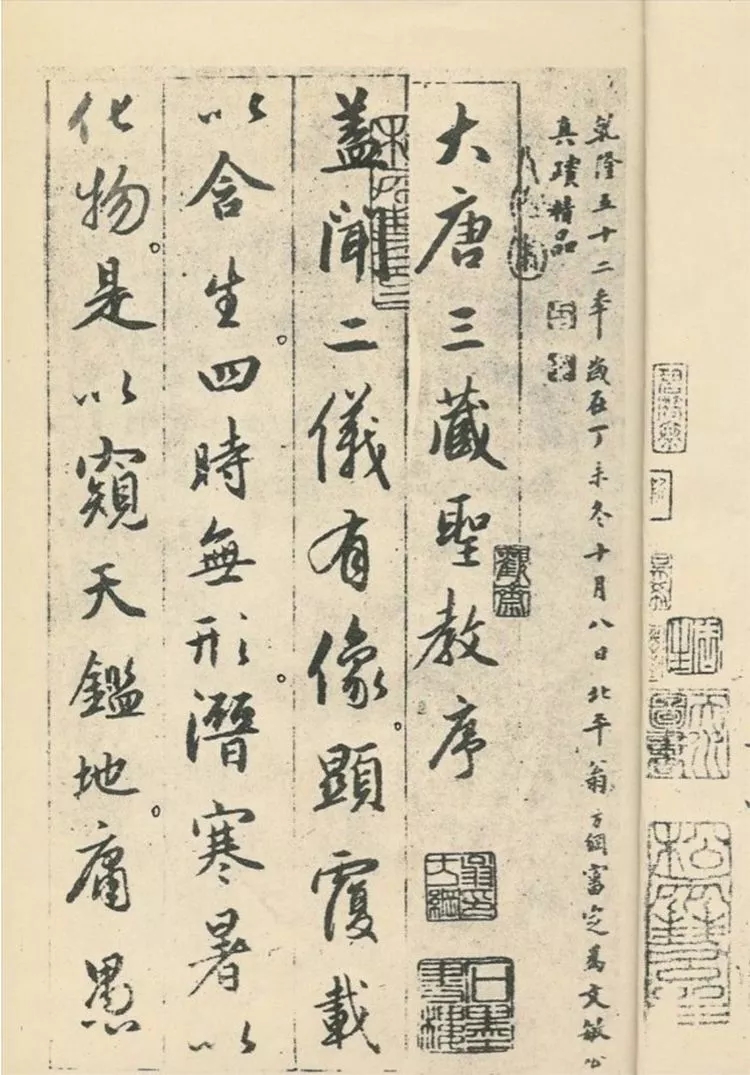 乾隆五十二年歲在丁未冬十月八日北平翁方綱審定為文敏公
真蹟精品
大唐三藏聖教序
蓋聞二儀有像顯覆載
以含生四時無形潛寒暑以
化物是以窺天鑑地庸愚